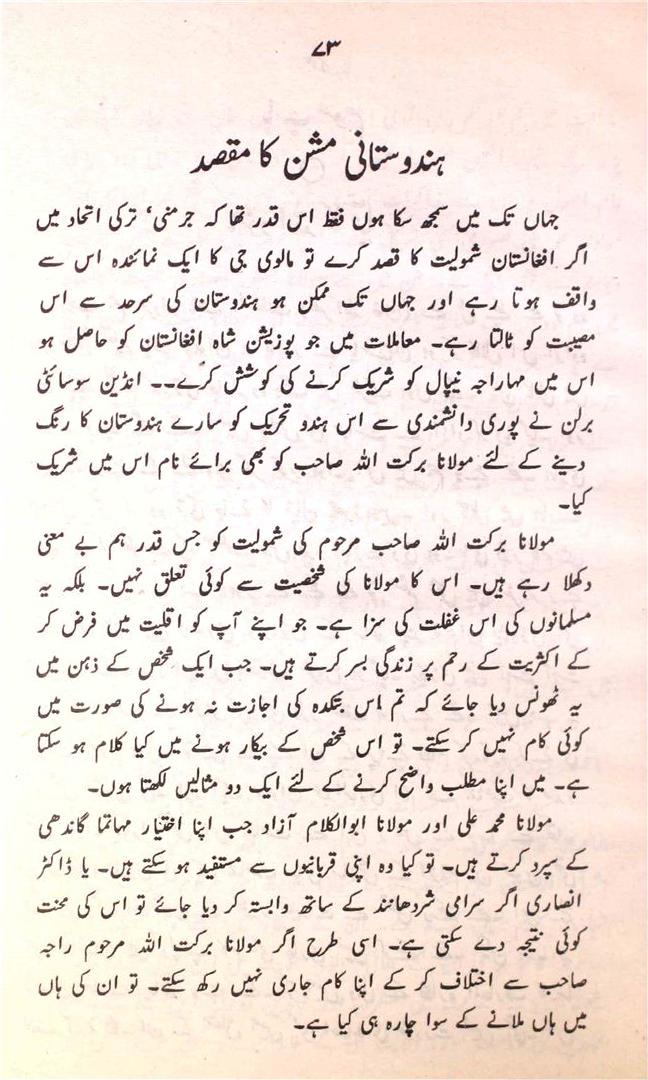 ۷۳
ہندوستانی مشن کا مقصد
جہاں تک میں سمجھ سکا ہوں فقط اس قدر تھا کہ جرمنی، ترکی اتحاد میں
اگر افغانستان شمولیت کا قصد کرے تو مالوی جی کا ایک نمائندہ اس سے
واقف ہوتا رہے اور جہاں تک ممکن ہو ہندوستان کی سرحد سے اس
مصیبت کو ٹالتا رہے۔ معاملات میں جو پوزیشن شاہ افغانستان کو حاصل ہو
اس میں مہاراجہ نیپال کو شریک کرنے کی کوشش کرے۔۔ انڈین سوسائٹی
برلن نے پوری دانشمندی سے اس ہندو تحریک کو سارے ہندوستان کا رنگ
دینے کے لئے مولانا برکت اللہ صاحب کو بھی برائے نام اس میں شریک
کیا۔
مولانا برکت اللہ صاحب مرحوم کی شمولیت کو جس قدر ہم بے معنی
دکھلا رہے ہیں۔ اس کا مولانا کی شخصیت سے کوئی تعلق نہیں۔ بلکہ یہ
مسلمانوں کی اس غفلت کی سزا ہے۔ جو اپنے آپ کو اقلیت میں فرض کر
کے اکثریت کے رحم پر زندگی بسر کرتے ہیں۔ جب ایک شخص کے ذہن میں
یہ ٹھونس دیا جائے کہ تم اس بتکدہ کی اجازت نہ ہونے کی صورت میں
کوئی کام نہیں کر سکتے۔ تو اس شخص کے بیکار ہونے میں کیا کلام ہو سکتا
ہے۔ میں اپنا مطلب واضح کرنے کے لئے ایک دو مثالیں لکھتا ہوں۔
مولانا محمد علی اور مولانا ابوالکلام آزاد جب اپنا اختیار مہاتما گاندھی
کے سپرد کرتے ہیں۔ تو کیا وہ اپنی قربانیوں سے مستفید ہو سکتے ہیں۔ یا ڈاکٹر
انصاری اگر سرامی شردھانند کے ساتھ وابستہ کر دیا جائے تو اس کی محنت
کوئی نتیجہ دے سکتی ہے۔ اسی طرح اگر مولانا برکت اللہ مرحوم راجہ
صاحب سے اختلاف کر کے اپنا کام جاری نہیں رکھ سکتے۔ تو ان کی ہاں
میں ہاں ملانے کے سوا چارہ ہی کیا ہے۔